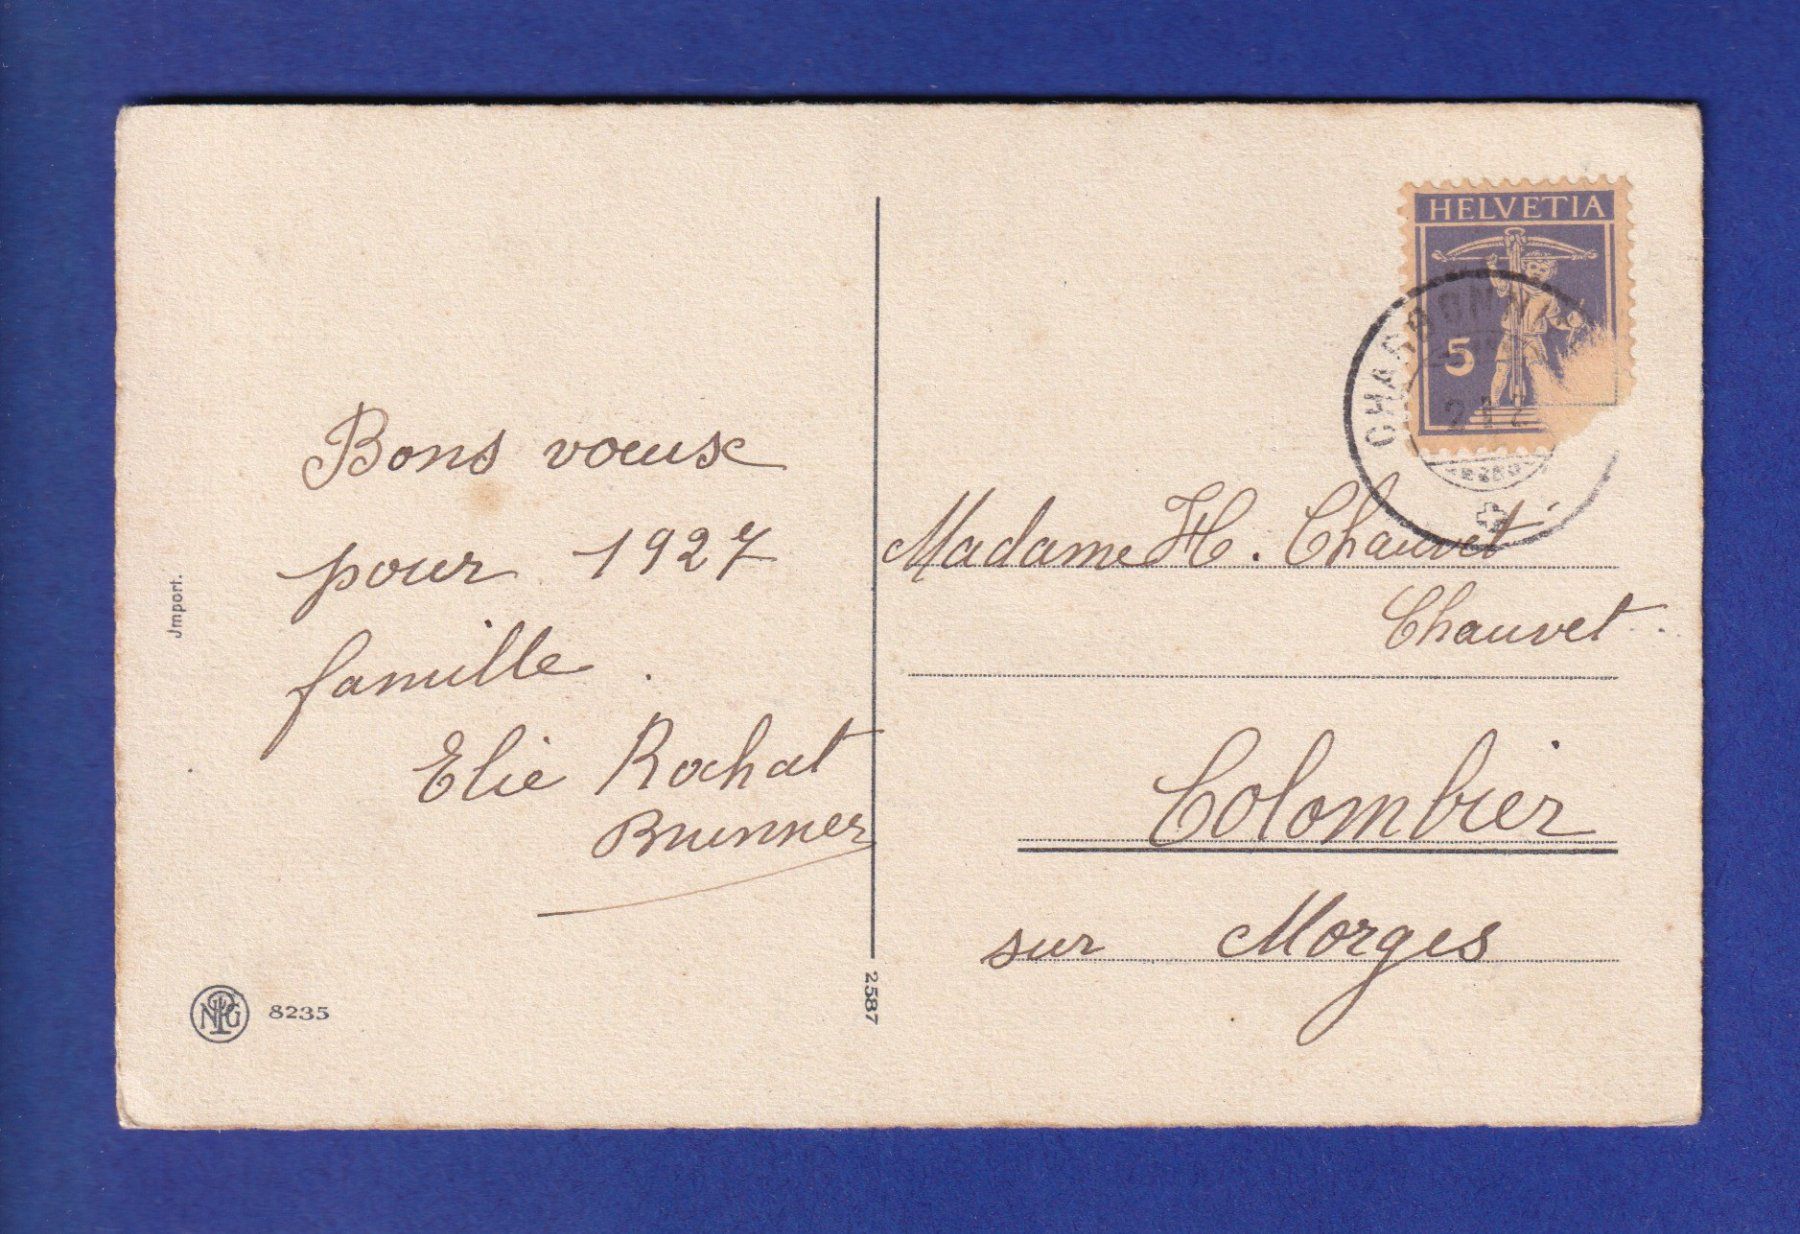 Bons vœux
pour 1927
famille.
Elie Rochat
Brunner
Jmport.
NPG 8235
2587
HELVETIA
5
Madame H. Chauvet
Chauvet.
Colombier
sur Morges